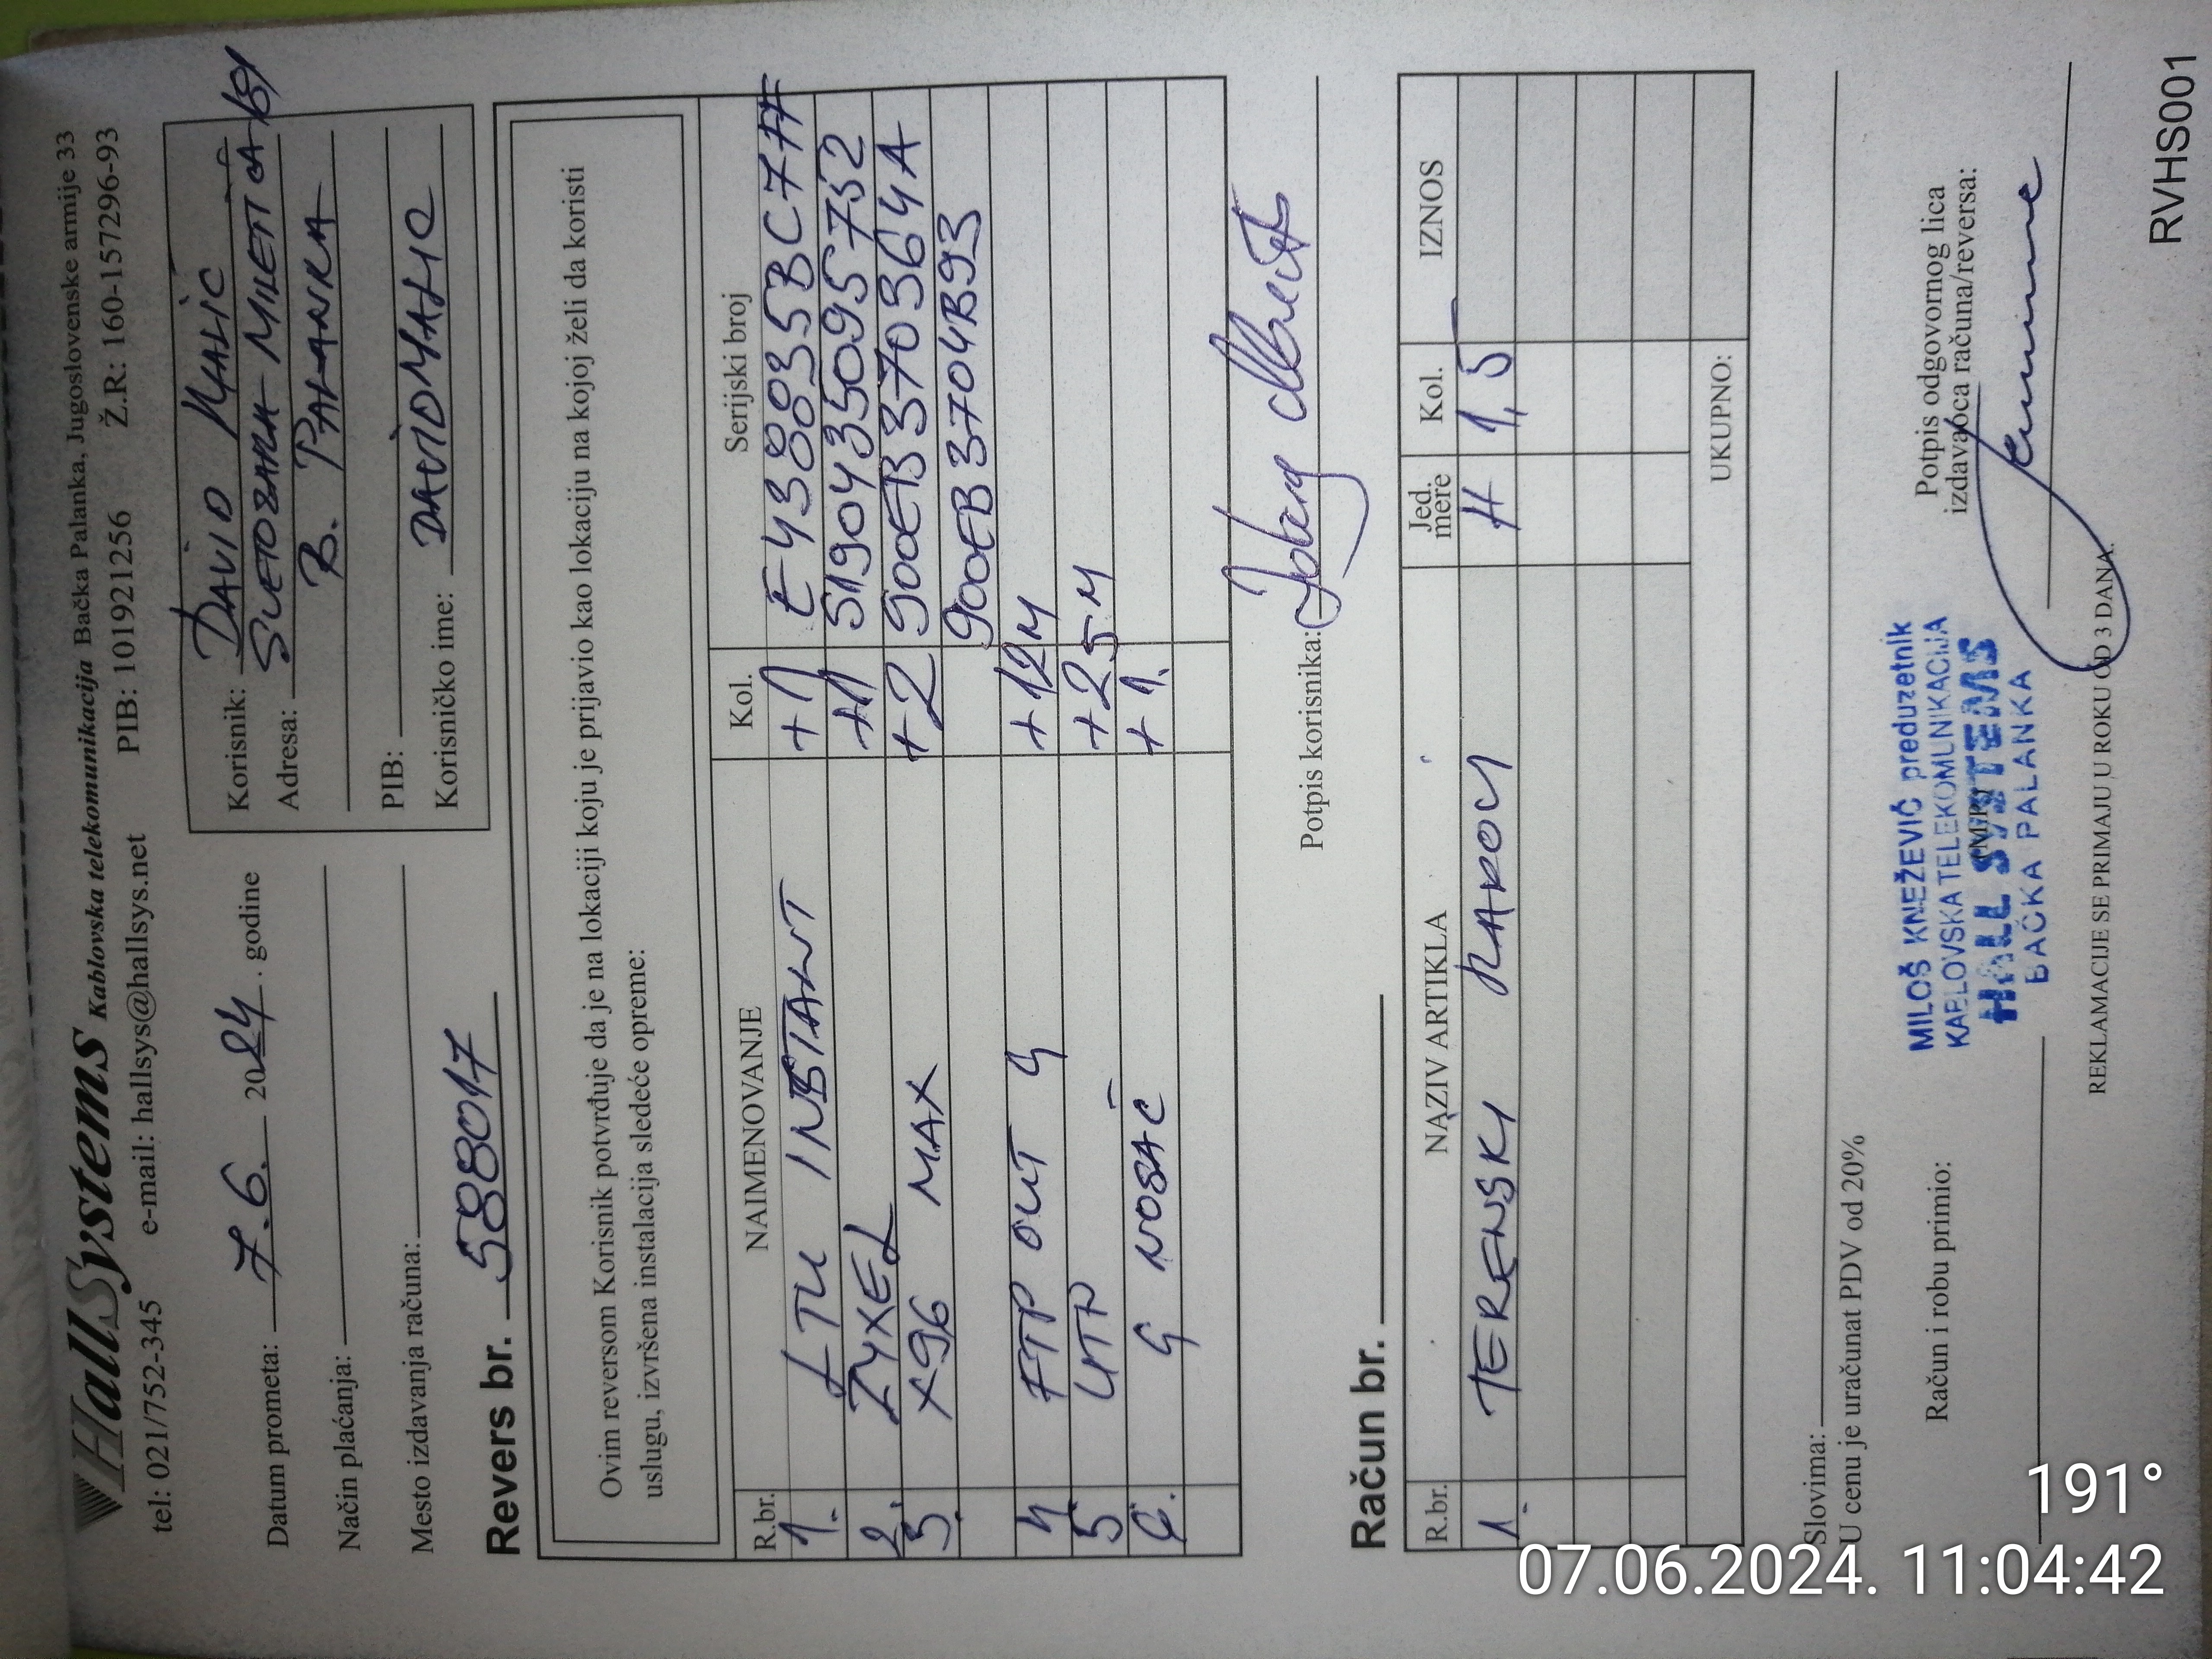 HallSystems Kablovska telekomunikacija Bačka Palanka, Jugoslovenske armije 33
tel: 021/752-345 e-mail: hallsys@hallsys.net PIB: 101921256 Ž.R: 160-157296-93
Datum prometa: 7.6. 2024. godine
Način plaćanja:
Mesto izdavanja računa:
Korisnik: DAVID MALIĆ
Adresa: SVETOZARA MILETIĆA
B. PALANKA
PIB:
Korisničko ime: DAVIDMALIC
Revers br. 588017
Ovim reversom Korisnik potvrđuje da je na lokaciji koju je prijavio kao lokaciju na kojoj želi da koristi
uslugu, izvršena instalacija sledeće opreme:
R.br. NAIMENOVANJE Kol. Serijski broj
1. LTU INSTANT +1 E438835BC7
2. ZYXEL +1 S190435095732
3. X96 MAX +2 900EB370364A
900EB3704B93
4 FTP OUT 4 +12M
5 UTP +25M
6. G NOSAČ +1.
Potpis korisnika:
Račun br.
R.br. NAZIV ARTIKLA Jed. mere Kol. IZNOS
1. TERENSKI RADOVI H 1,5
UKUPNO:
Slovima:
U cenu je uračunat PDV od 20%
Račun i robu primio:
Potpis odgovornog lica
izdavaoca računa/reversa:
MILOŠ KNEŽEVIĆ preduzetnik
KABLOVSKA TELEKOMUNIKACIJA
(M.P.)
HALL SYSTEMS
BAČKA PALANKA
REKLAMACIJE SE PRIMAJU U ROKU OD 3 DANA.
RVHS001
191°
07.06.2024. 11:04:42